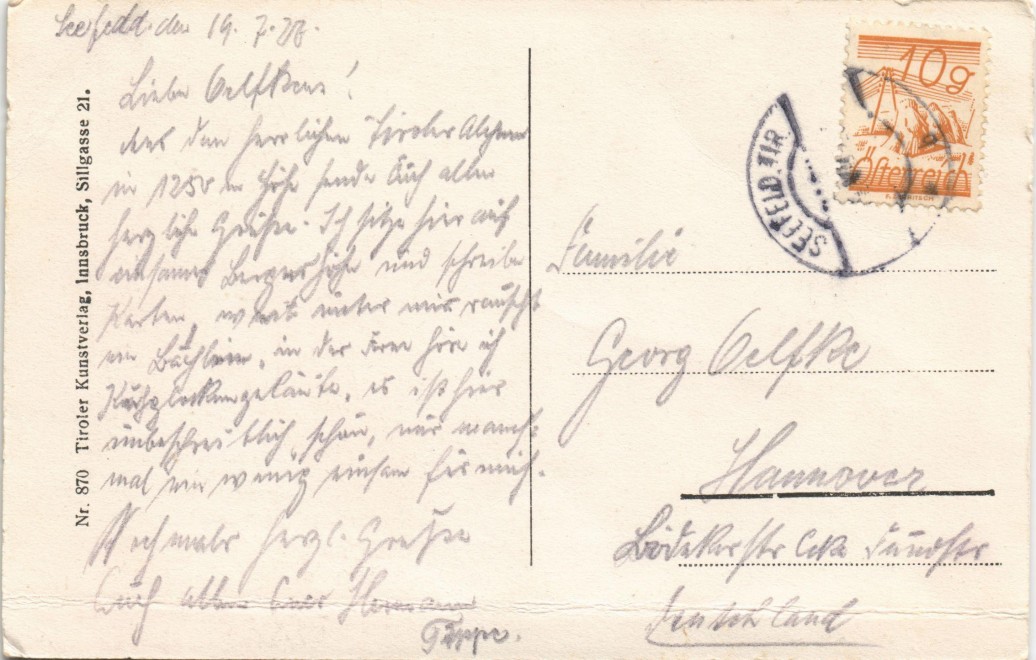 Seefeld. den 19. 7. 28.
Liebe Oelfkens!
Aus den herrlichen Tiroler Alpen
in 1250 m Höhe sende Euch allen
herzliche Grüße. Ich sitze hier auf
einsamer Bergeshöhe und schreibe
Karten, weit unter mir rauscht
ein Bächlein, in der Ferne höre ich
Kuhglockengeläute, es ist hier
unbeschreiblich schön, nur manch-
mal ein wenig einsam für mich.
Nochmals herzl. Grüße
Euch allen Euer Hermann
Nr. 870 Tiroler Kunstverlag, Innsbruck, Sillgasse 21.
10g
Österreich
SEEFELD. TIR
Familie
Georg Oelfke
Hannover
Bödekerstr Ecke Sundstr
Deutschland